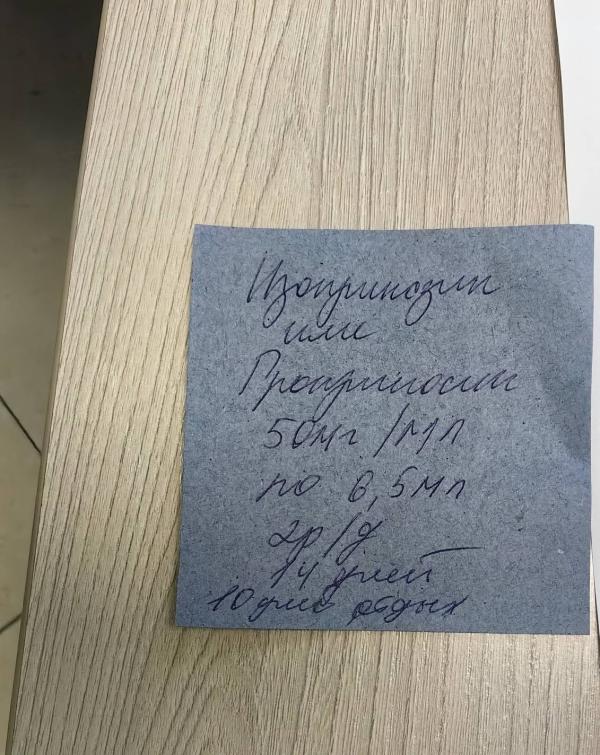 Изопринозин
или
Гроприносин
50мг/мл
по 6,5мл
2р/д
14 дней
10 дней отдых